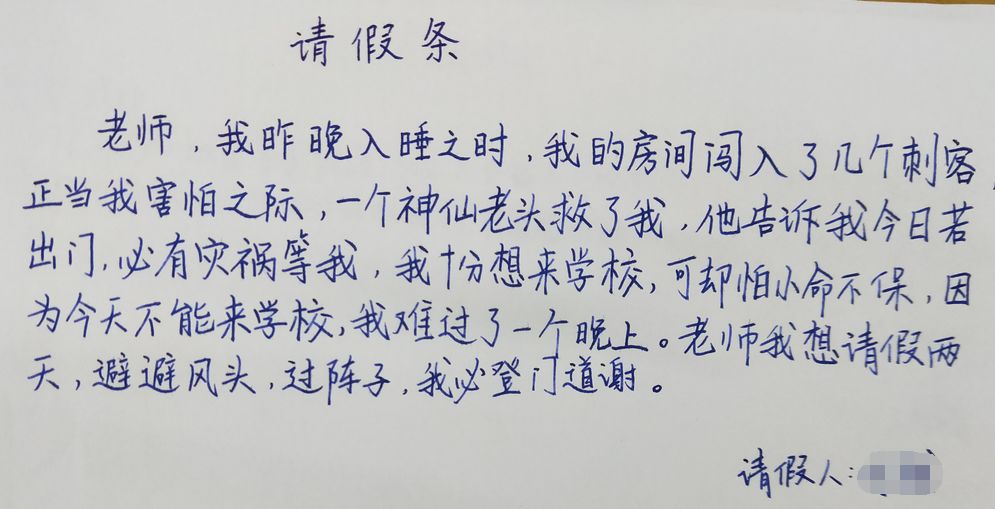 请假条
老师，我昨晚入睡之时，我的房间闯入了几个刺客，
正当我害怕之际，一个神仙老头救了我，他告诉我今日若
出门，必有灾祸等我，我十分想来学校，可却怕小命不保，因
为今天不能来学校，我难过了一个晚上。老师我想请假两
天，避避风头，过阵子，我必登门道谢。
请假人：